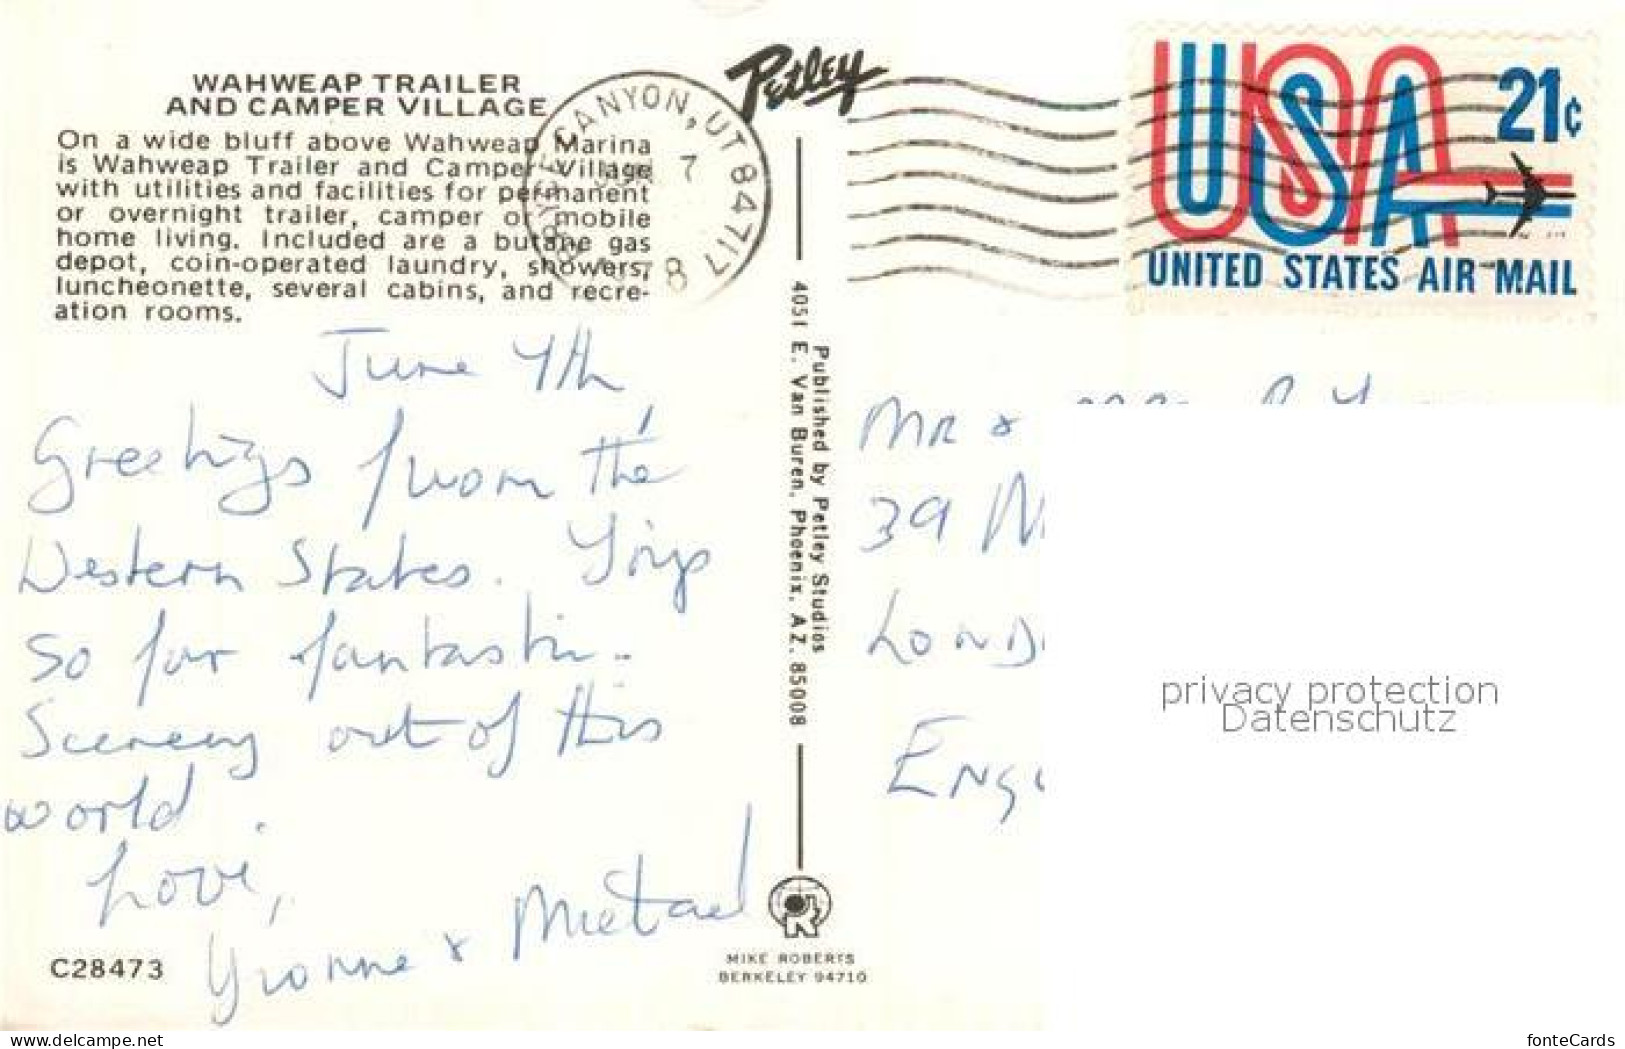 WAHWEAP TRAILER
AND CAMPER VILLAGE
On a wide bluff above Wahweap Marina
is Wahweap Trailer and Camper Village
with utilities and facilities for permanent
or overnight trailer, camper or mobile
home living. Included are a butane gas
depot, coin-operated laundry, showers,
luncheonette, several cabins, and recre-
ation rooms.
June 4th
Greetings from the
Western States. Trips
so far fantastic..
Scenery out of this
world.
Love,
Yvonne & Michael
C28473
CANYON, UT 84717
7
Petley
Published by Petley Studios
4051 E. Van Buren, Phoenix, AZ. 85008
MIKE ROBERTS
BERKELEY 94710
USA
21c
UNITED STATES AIR MAIL
MR &
39
LOND
ENG
privacy protection
Datenschutz
www.delcampe.net
fonteCards